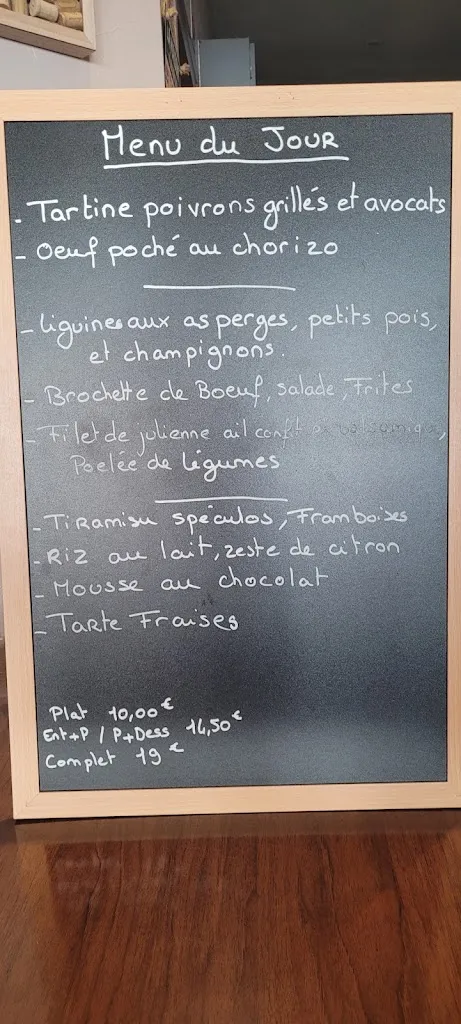 Menu du Jour
- Tartine poivrons grillés et avocats
- Oeuf poché au chorizo
- Liguines aux asperges, petits pois,
et champignons.
- Brochette de Boeuf, salade, Frites
- Filet de julienne ail confit balsamique,
Poelée de légumes
- Tiramisu spéculos, Framboises
- Riz au lait, zeste de citron
- Mousse au chocolat
- Tarte Fraises
Plat 10,00€
Ent+P / P+Dess 14,50€
Complet 19€